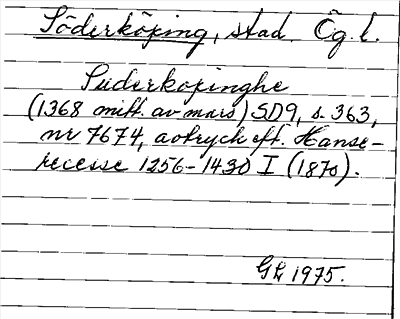 Söderköping, stad. Ög. l.
Suderkopinghe
(1368 mitt. av mars) SD9, s. 363,
nr 7674, avtryck eft. Hanse-
recesse 1256-1430 I (1870).
GL 1975.